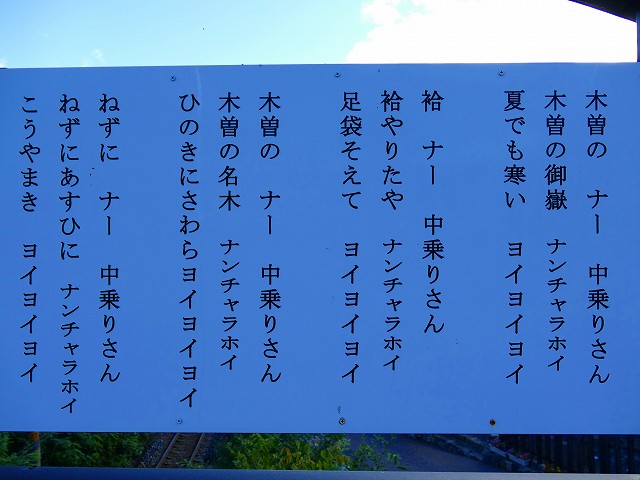 木曽の　ナー　中乗りさん
木曽の御嶽　ナンチャラホイ
夏でも寒い　ヨイヨイヨイ
袷　ナー　中乗りさん
袷やりたや　ナンチャラホイ
足袋そえて　ヨイヨイヨイ
木曽の　ナー　中乗りさん
木曽の名木　ナンチャラホイ
ひのきにさわらヨイヨイヨイ
ねずに　ナー　中乗りさん
ねずにあすひに　ナンチャラホイ
こうやまき　ヨイヨイヨイ